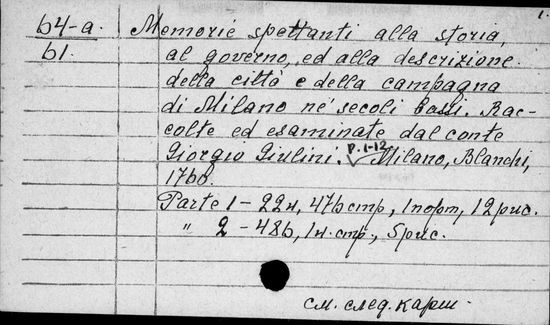 1.
64-a. Memorie spettanti alla storia,
61. al governo, ed alla descrizione
della città e della campagna
di Milano ne' secoli bassi. Rac-
colte ed esaminate dal conte
Giorgio Giulini. p. 1-12 Milano, Bianchi,
1760.
Parte 1 – 22н, 476 стр, 1 порт, 12 рис.
" 2 – 486, 1н. стр., 5 рис.
см. след. карт.